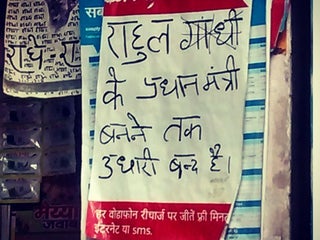 सब
राहुल गांधी
के प्रधानमंत्री
बनने तक
उधारी बन्द है।
हर वोडाफोन रीचार्ज पर जीतें फ्री मिनट
इंटरनेट या sms.